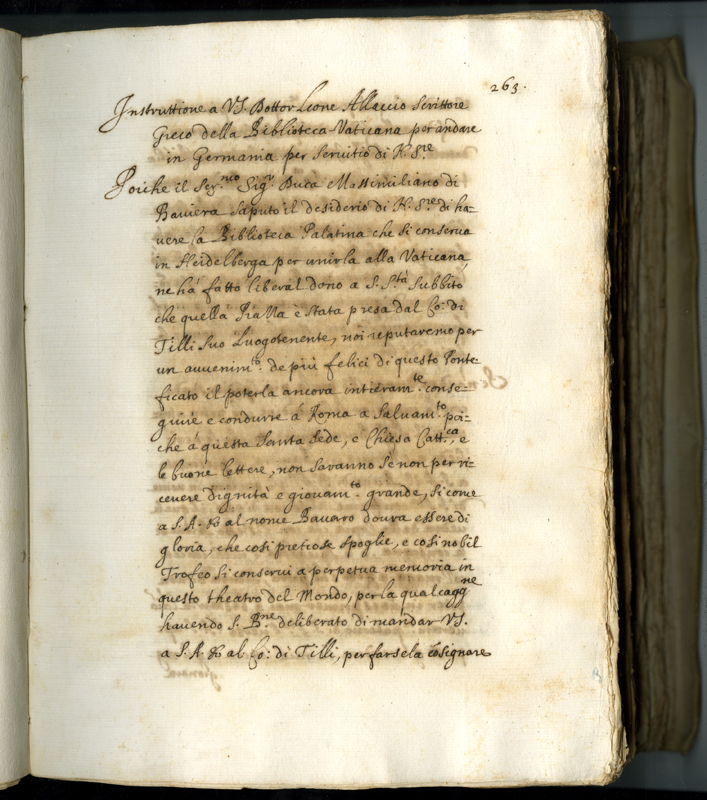 263.
Instruttione a VS. Dottor Leone Allaccio Scrittore
Greco della Biblioteca Vaticana per andare
in Germania per servitio di N. Sre
Poiche il Ser.mo Sigr. Duca Massimiliano di
Baviera saputo il desiderio di N. Sre di ha=
vere la Biblioteca Palatina che si conserva
in Heidelberga per unirla alla Vaticana,
ne hà fatto liberal dono a S. Stà subbito
che quella Piazza è stata presa dal Co: di
Tilli suo Luogotenente, noi reputaremo per
un avvenim.to de più felici di questo Ponte=
ficato il poterla ancora intieram.te conse=
guire e condurre à Roma a salvam.to poi=
che à questa Santa Sede, e Chiesa Catt.ca, e
le buone lettere, non saranno se non per ri=
cevere dignità e giovam.to grande, si come
a S. A. & al nome Bavaro dovrà essere di
gloria, che così pretiose spoglie, e così nobil
Trofeo si conservi a perpetua memoria in
questo theatro del Mondo, per la qual cagg.ne
havendo S. B.ne deliberato di mandar VS.
a S. A. & al Co: di Tilli, per farsela cōsignare